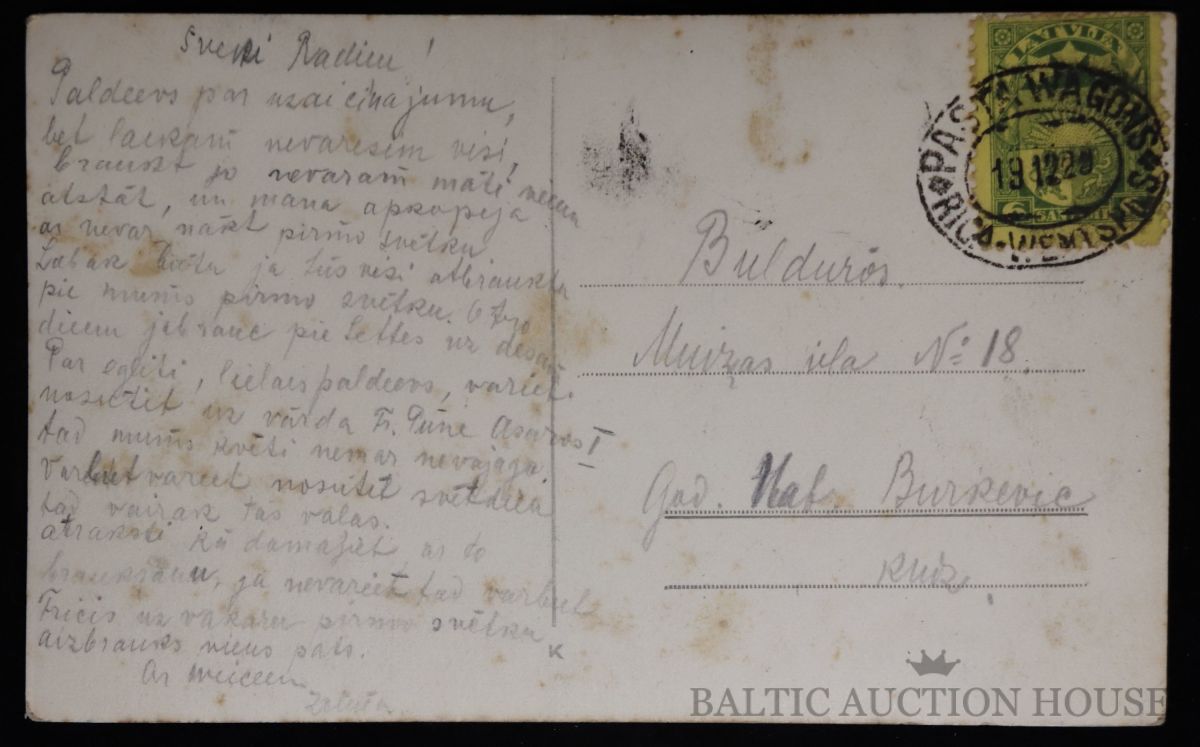 Sveiki Radiņi!
Paldeevs par uzaicinajumu,
bet laikam nevaresim visi
braukt jo nevaram māti vienu
atstāt, un mana apkopeja
ar nevar nākt pirmo svētku
Labak būtu ja jūs visi atbrauktu
pie mums pirmo svētku.
dienu jabrauc pie Settes uz
Par egliti, lielais paldeevs, varēet
nosutit uz vārda Fr. Pūne Asaros I
tad mums kvēti nemar nevajaga
Varbut vareet nosutet svētdeen
tad vairak tas vaļas.
atraksti kā domajiet ar to
braukšanu, ja nevareet tad varbut
Fricis uz vakaru pirmo svētku
aizbrauks viens pats.
Ar sveiceen
K
LATVIJA
6 SANTIMI
PASTA WAGONS
19 12 29
RIGA-WENTSPILS
Bulduros.
Muižas iela No 18.
God. Nat. Burkevic
kndz.
BALTIC AUCTION HOUSE